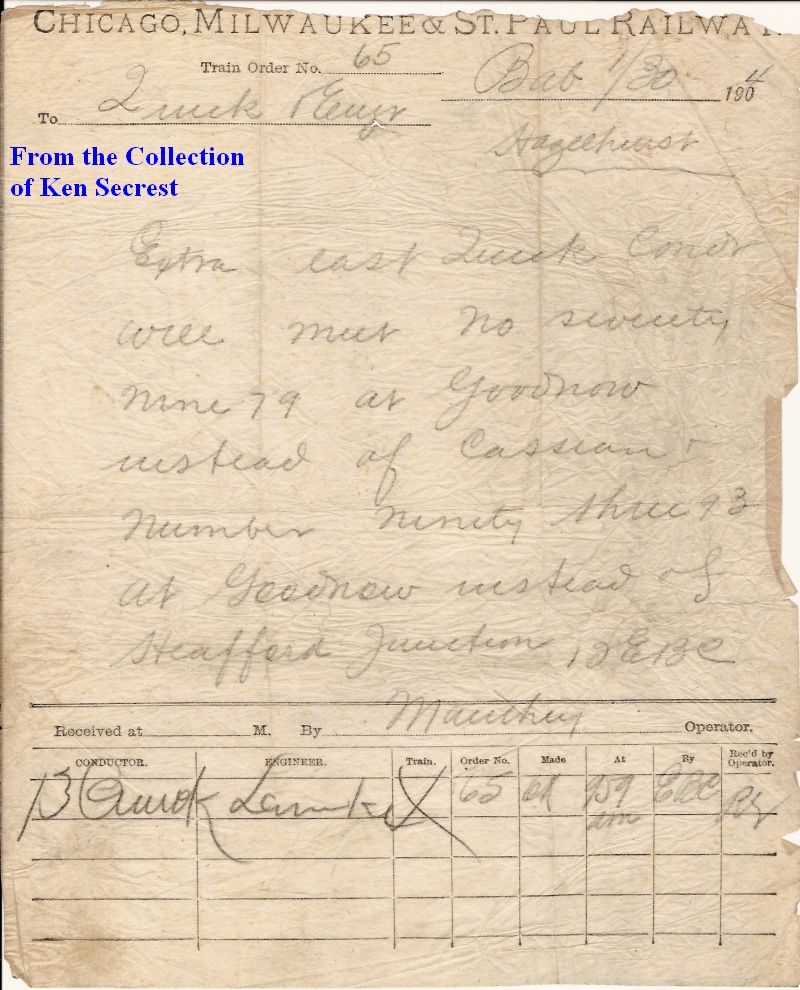 CHICAGO, MILWAUKEE & ST. PAUL RAILWAY.
Train Order No. 65
Bab 1/30 1904
To Quick & Engr
Hazelhurst
From the Collection
of Ken Secrest
Extra east Quick Condr
will meet No seventy
nine 79 at Goodnow
instead of Cassian &
Number Ninety three 93
at Goodnow instead of
Heafford Junction
Received at M. By Manthey Operator.
CONDUCTOR. ENGINEER. Train. Order No. Made At By Rec'd by Operator.
65 959 am EBC